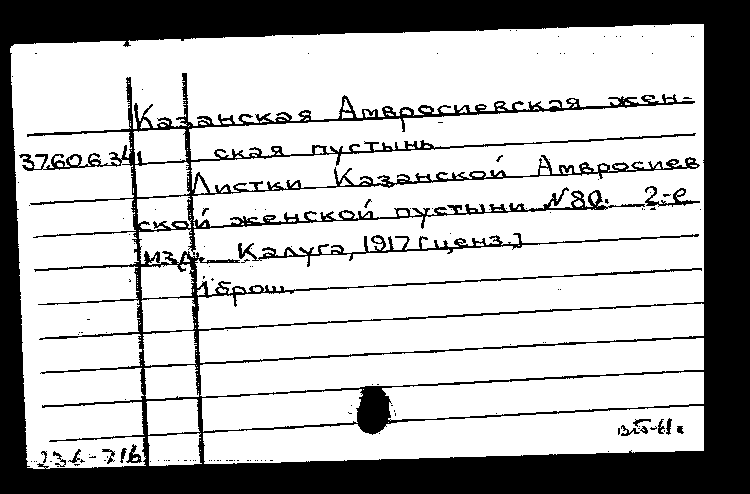 Казанская Амвросиевская жен-
37.60.6.341 ская пустынь
Листки Казанской Амвросиев
ской женской пустыни. №80. 2-е
изд. Калуга, 1917 [ценз.]
1 брош.
236-716